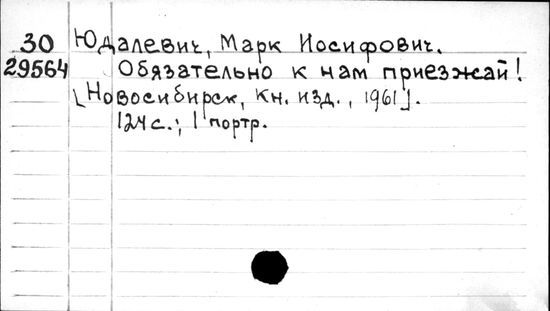 30 Юдалевич, Марк Иосифович.
29564 Обязательно к нам приезжай!
[Новосибирск, Кн. изд., 1961].
124с.; 1 портр.